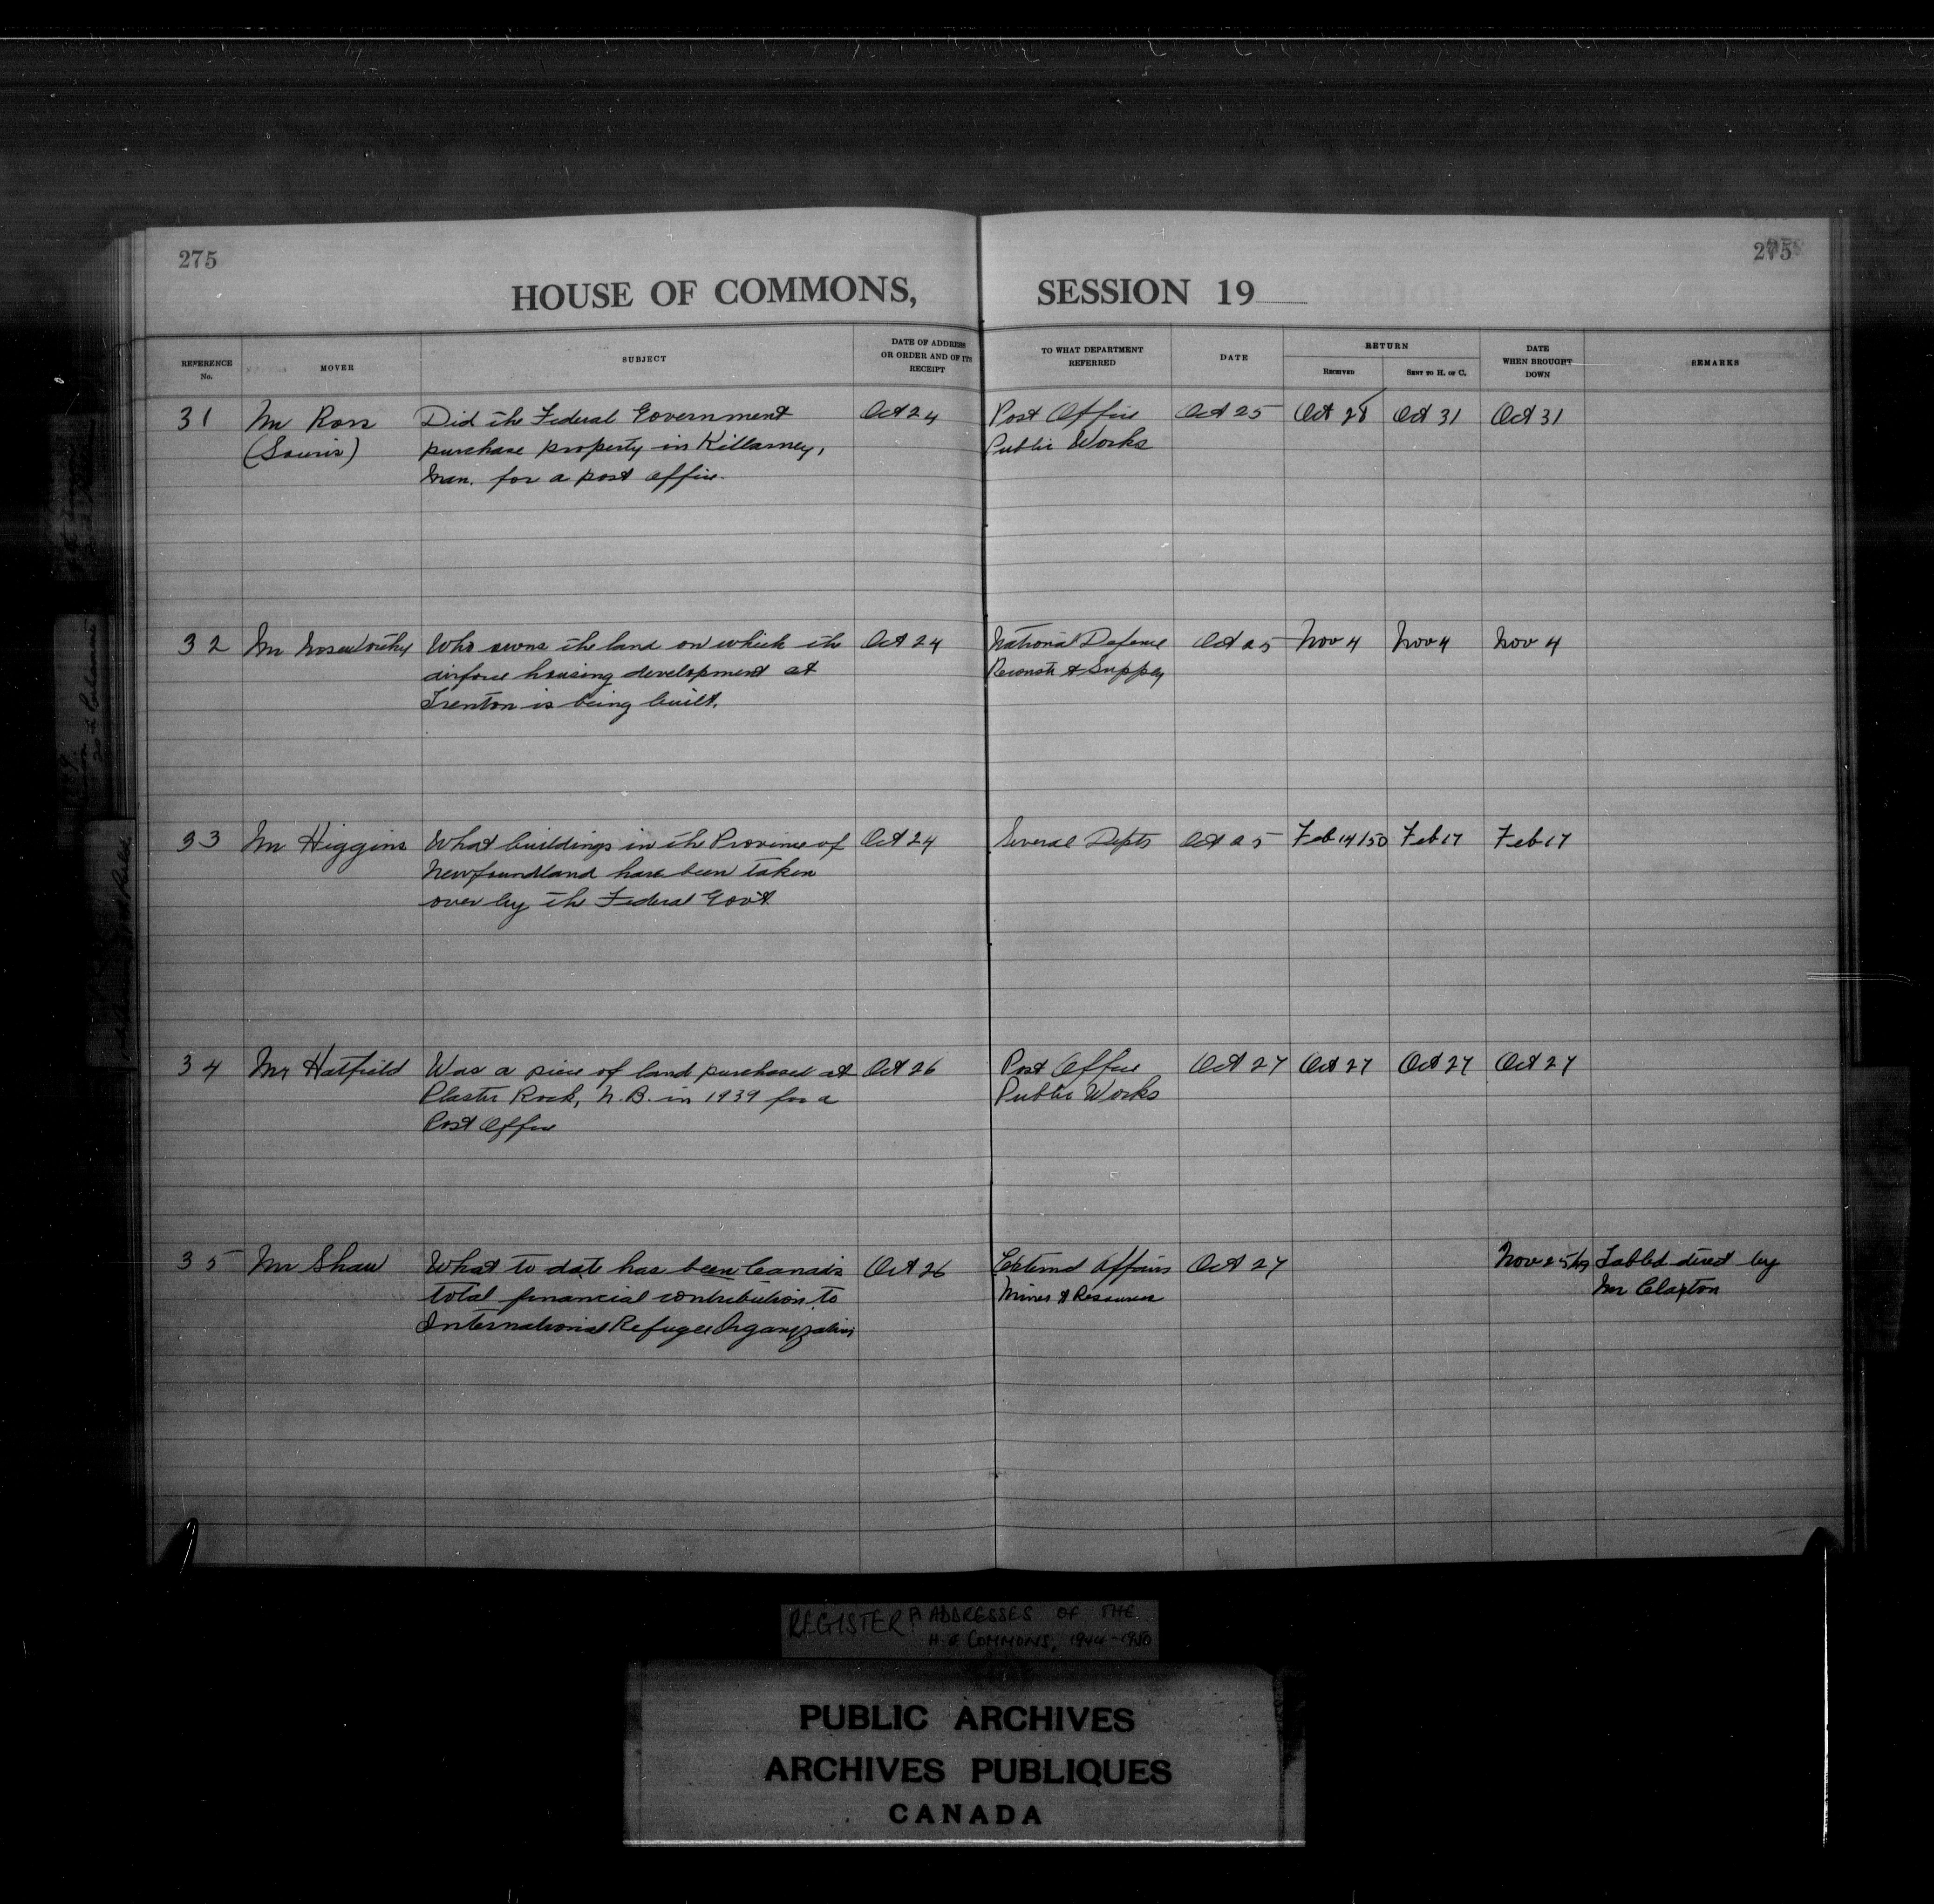 275
275
HOUSE OF COMMONS, SESSION 19
REFERENCE No. MOVER SUBJECT DATE OF ADDRESS OR ORDER AND OF ITS RECEIPT TO WHAT DEPARTMENT REFERRED DATE RETURN RECEIVED SENT TO H. OF C. DATE WHEN BROUGHT DOWN REMARKS
31 Mr Ross Did the Federal Government Oct 24 Post Office Oct 25 Oct 28 Oct 31 Oct 31
(Souris) purchase property in Killarney, Public Works
Man. for a post office.
32 Mr Noseworthy Who owns the land on which the Oct 24 National Defence Oct 25 Nov 4 Nov 4 Nov 4
airforce housing development at Reconst & Supply
Trenton is being built.
33 Mr Higgins What buildings in the Province of Oct 24 Several Depts Oct 25 Feb 14/50 Feb 17 Feb 17
Newfoundland have been taken
over by the Federal Gov't
34 Mr Hatfield Was a piece of land purchased at Oct 26 Post Office Oct 27 Oct 27 Oct 27 Oct 27
Plaster Rock, N.B. in 1939 for a Public Works
Post Office
35 Mr Shaw What to date has been Canada's Oct 26 External Affairs Oct 27 Nov 25/49 Tabled direct by
total financial contribution to Mines & Resources Mr Claxton
International Refugee Organization
REGISTER OF ADDRESSES OF THE
H. of COMMONS, 1944-1950
PUBLIC ARCHIVES
ARCHIVES PUBLIQUES
CANADA